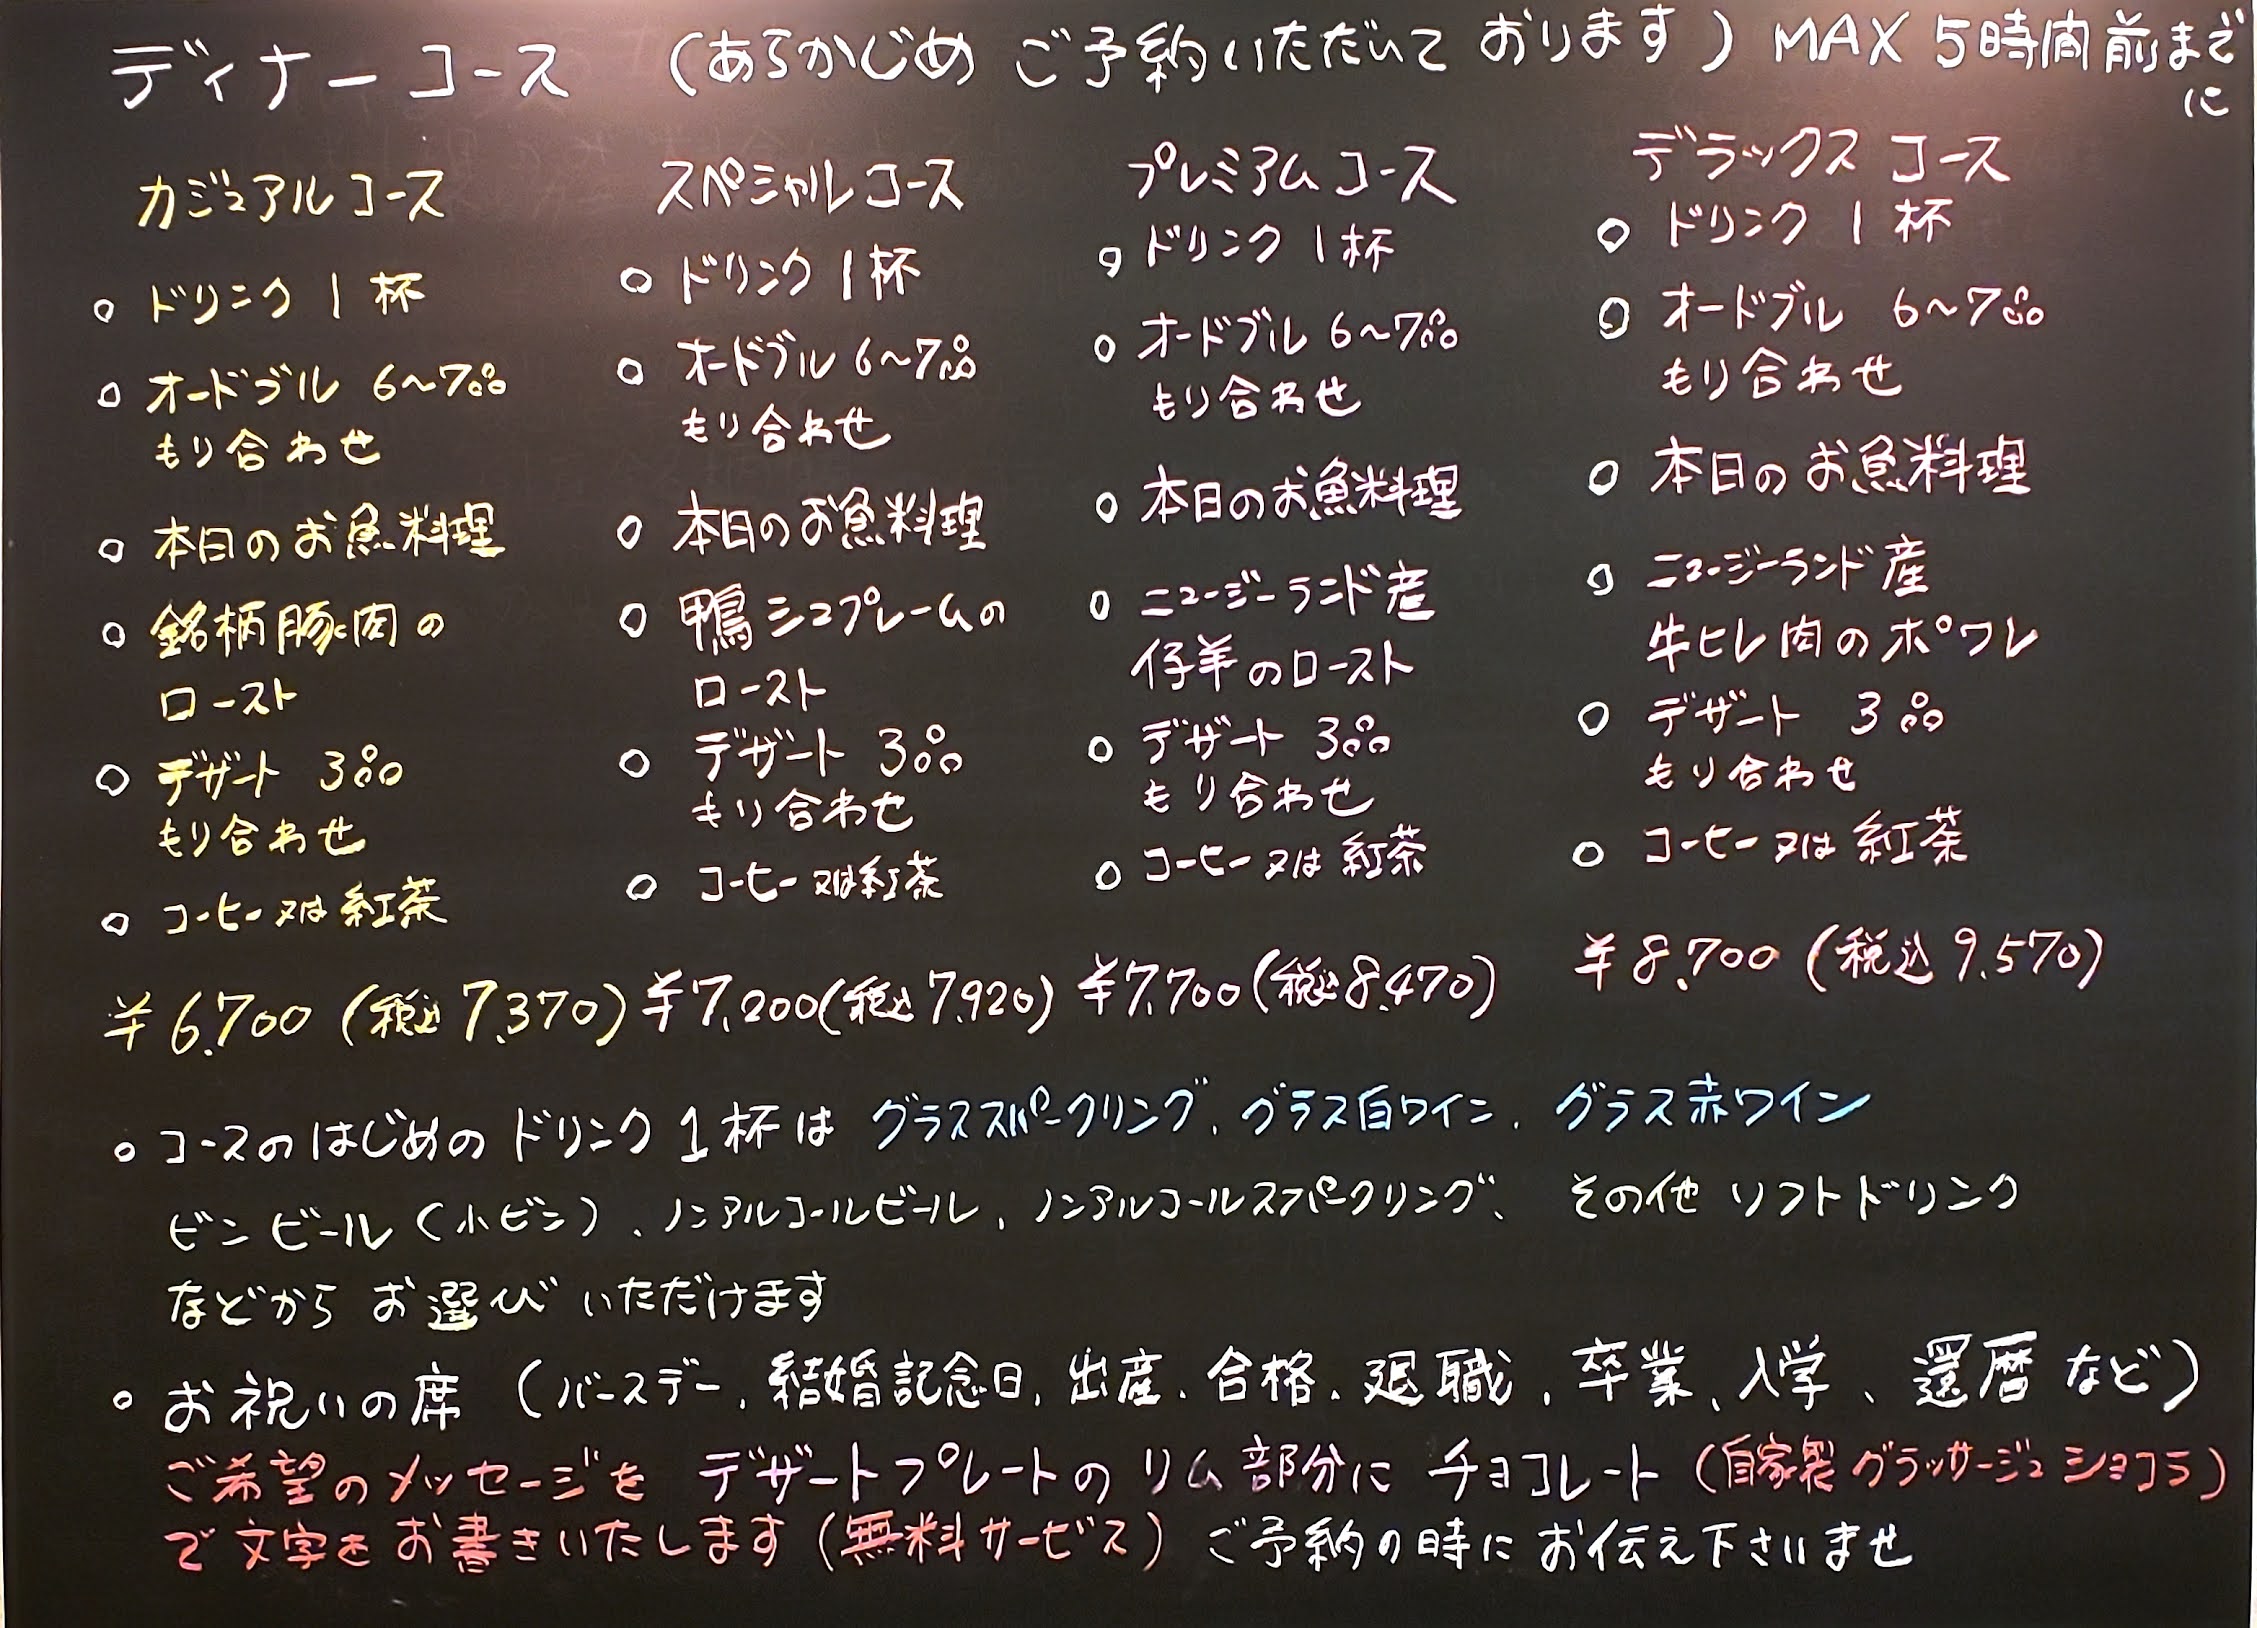 ディナーコース （あらかじめ ご予約いただいて おります）MAX 5時間前まで
に
カジュアルコース
○ ドリンク 1杯
○ オードブル 6〜7品
もり合わせ
○ 本日のお魚料理
○ 銘柄豚肉の
ロースト
○ デザート 3品
もり合わせ
○ コーヒー又は紅茶
¥6.700（税込7.370）
スペシャルコース
○ ドリンク 1杯
○ オードブル 6〜7品
もり合わせ
○ 本日のお魚料理
○ 鴨シュプレームの
ロースト
○ デザート 3品
もり合わせ
○ コーヒー又は紅茶
¥7.200（税込7.920）
プレミアムコース
○ ドリンク 1杯
○ オードブル 6〜7品
もり合わせ
○ 本日のお魚料理
○ ニュージーランド産
仔羊のロースト
○ デザート 3品
もり合わせ
○ コーヒー又は紅茶
¥7.700（税込8.470）
デラックス コース
○ ドリンク 1杯
○ オードブル 6〜7品
もり合わせ
○ 本日のお魚料理
○ ニュージーランド産
牛ヒレ肉のポワレ
○ デザート 3品
もり合わせ
○ コーヒー又は紅茶
¥8.700（税込9.570）
○ コースのはじめの ドリンク 1杯は グラススパークリング、グラス白ワイン、グラス赤ワイン
ビンビール（小ビン）、ノンアルコールビール、ノンアルコールスパークリング、その他 ソフトドリンク
などから お選び いただけます
○ お祝いの席（バースデー、結婚記念日、出産、合格、退職、卒業、入学、還暦など）
ご希望のメッセージを デザートプレートの リム部分に チョコレート（自家製グラッサージュショコラ）
で文字をお書きいたします（無料サービス）ご予約の時にお伝え下さいませ